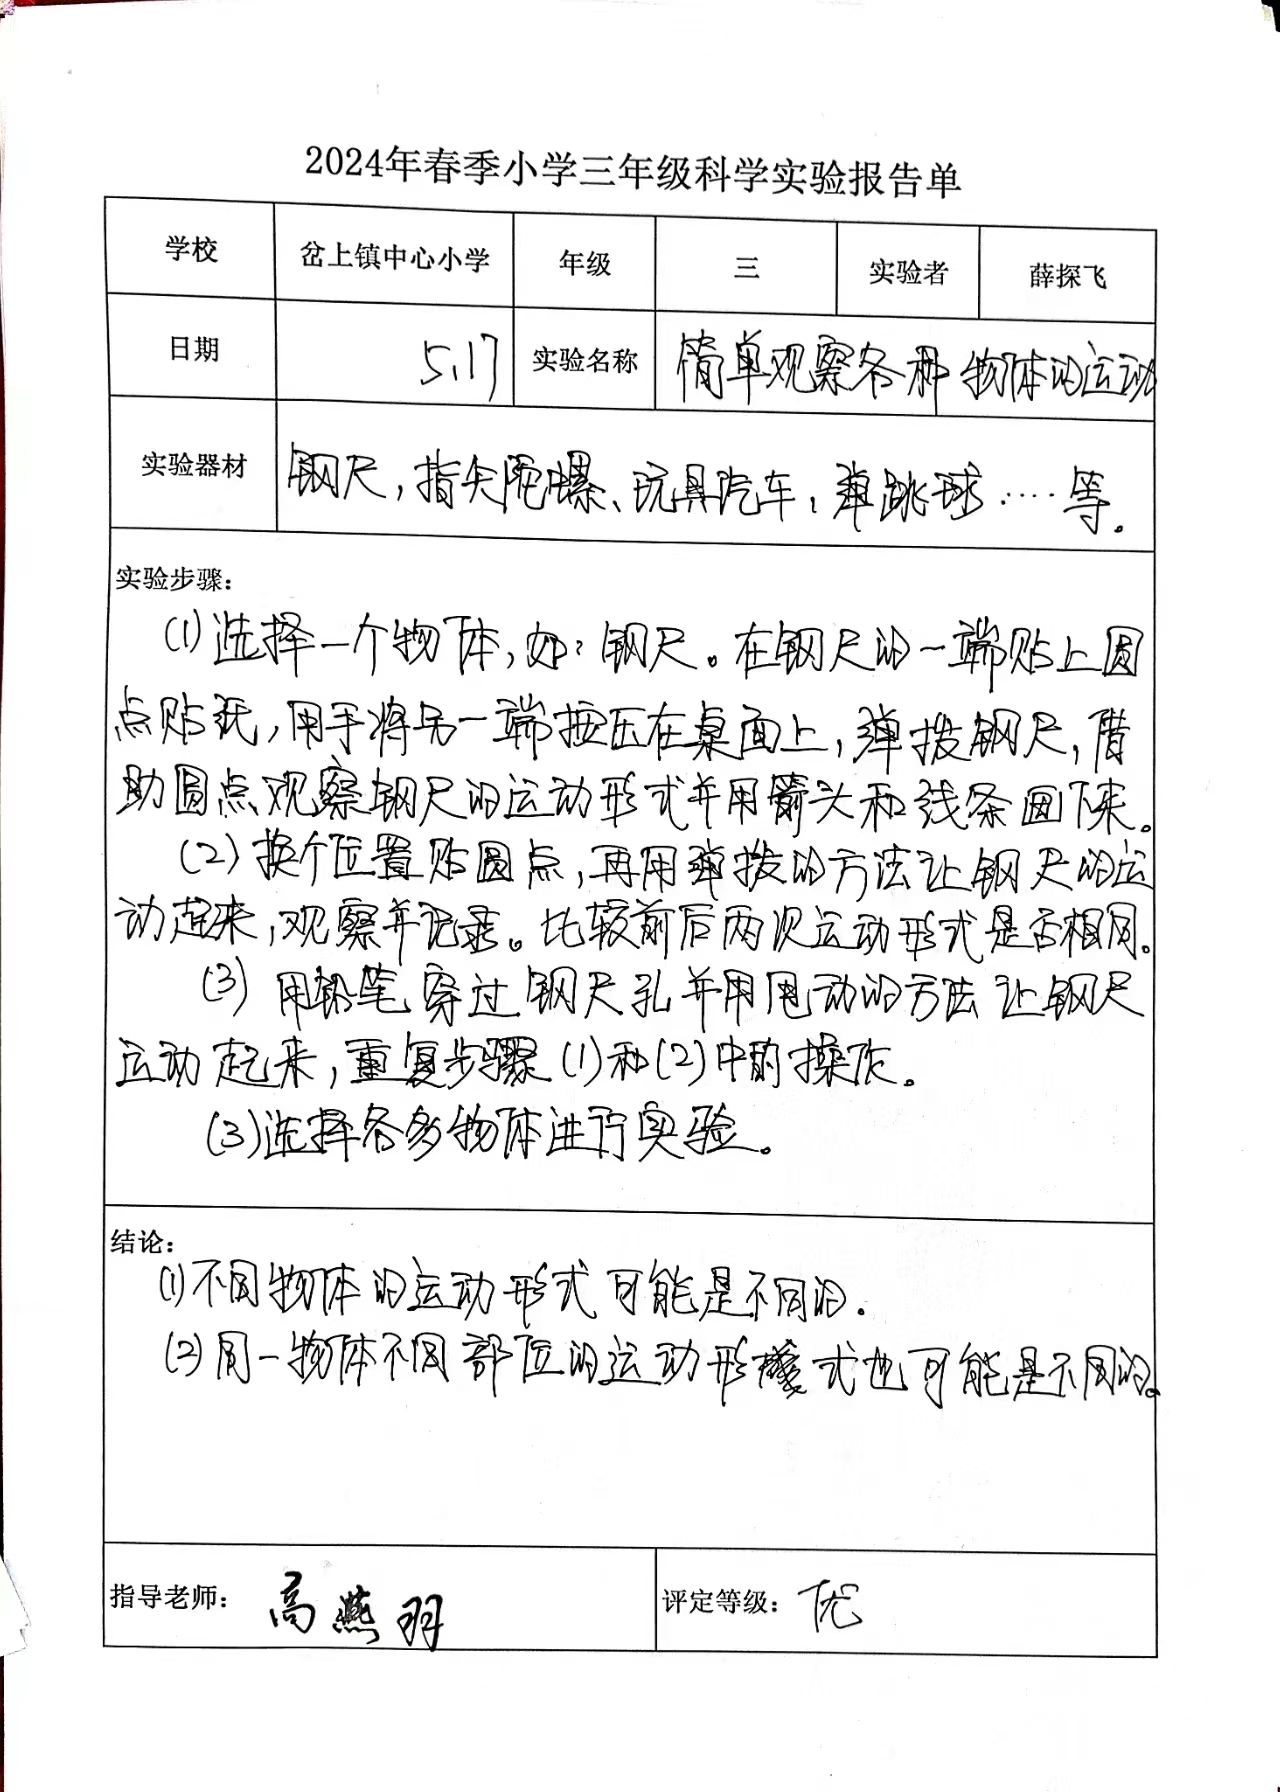 2024年春季小学三年级科学实验报告单
学校 岔上镇中心小学 年级 三 实验者 薛探飞
日期 5.17 实验名称 简单观察各种物体的运动
实验器材 钢尺,指尖陀螺、玩具汽车,弹跳球……等。
实验步骤:
(1)选择一个物体,如:钢尺。在钢尺的一端贴上圆
点贴纸,用手将另一端按压在桌面上,弹拨钢尺,借
助圆点观察钢尺的运动形式并用箭头和线条画下来。
(2)换个位置贴圆点,再用弹拨的方法让钢尺的运
动起来,观察并记录。比较前后两次运动形式是否相同。
(3)用铅笔穿过钢尺孔并用甩动的方法让钢尺
运动起来,重复步骤(1)和(2)中的操作。
(3)选择各多物体进行实验。
结论:
(1)不同物体的运动形式可能是不同的.
(2)同一物体不同部位的运动形式也可能是不同的。
指导老师: 高燕羽 评定等级: 优